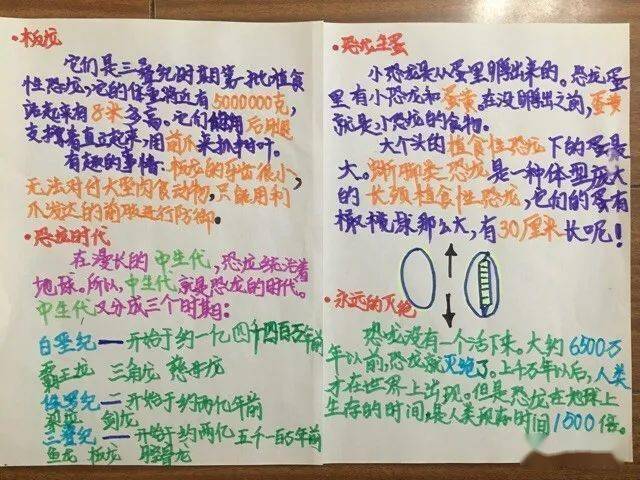 ·板龙
它们是三叠纪时期第一批植食
性恐龙,它的体重将近有5000000克,
站起来有8米多高。它们能用后腿
支撑着直立起来,用前爪来抓树叶。
有趣的事情:板龙的牙齿很小,
无法对付大型肉食动物,只能用利
爪发达的前肢进行防御。
·恐龙时代
在漫长的中生代,恐龙统治着
地球。所以,中生代就是恐龙的时代。
中生代又分成三个时期:
白垩纪—开始于约一亿四千四百万年前
霸王龙 三角龙 慈母龙
侏罗纪—开始于约两亿年前
梁龙 剑龙
三叠纪—开始于约两亿五千一百万年前
鱼龙 板龙 腔骨龙
·恐龙生蛋
小恐龙是从蛋里孵出来的。恐龙蛋
里有小恐龙和蛋黄,在没孵出之前,蛋黄
就是小恐龙的食物。
大个头的植食性恐龙下的蛋最
大。蜥脚类恐龙是一种体型庞大
的长颈植食性恐龙,它们的蛋有
橄榄球那么大,有30厘米长呢!
·永远的灭绝
恐龙没有一个活下来。大约6500万
年以前,恐龙就灭绝了。上千万年以后,人类
才在世界上出现。但是恐龙在地球上
生存的时间,是人类现存时间1500倍。